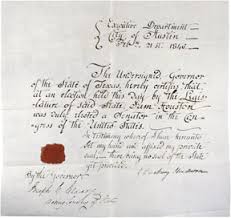 Executive Department
City of Austin
Feby. 21st. 1846.
The Undersigned Governor
of the State of Texas, hereby certifies that
at an election held this day by the Legis-
lature of said State Sam Houston
was duly elected a Senator in the Con-
gress of the United States.
In testimony whereof I have hereunto
set my hand and affixed my private
seal, there being no seal of the State
yet provided.
By the Governor